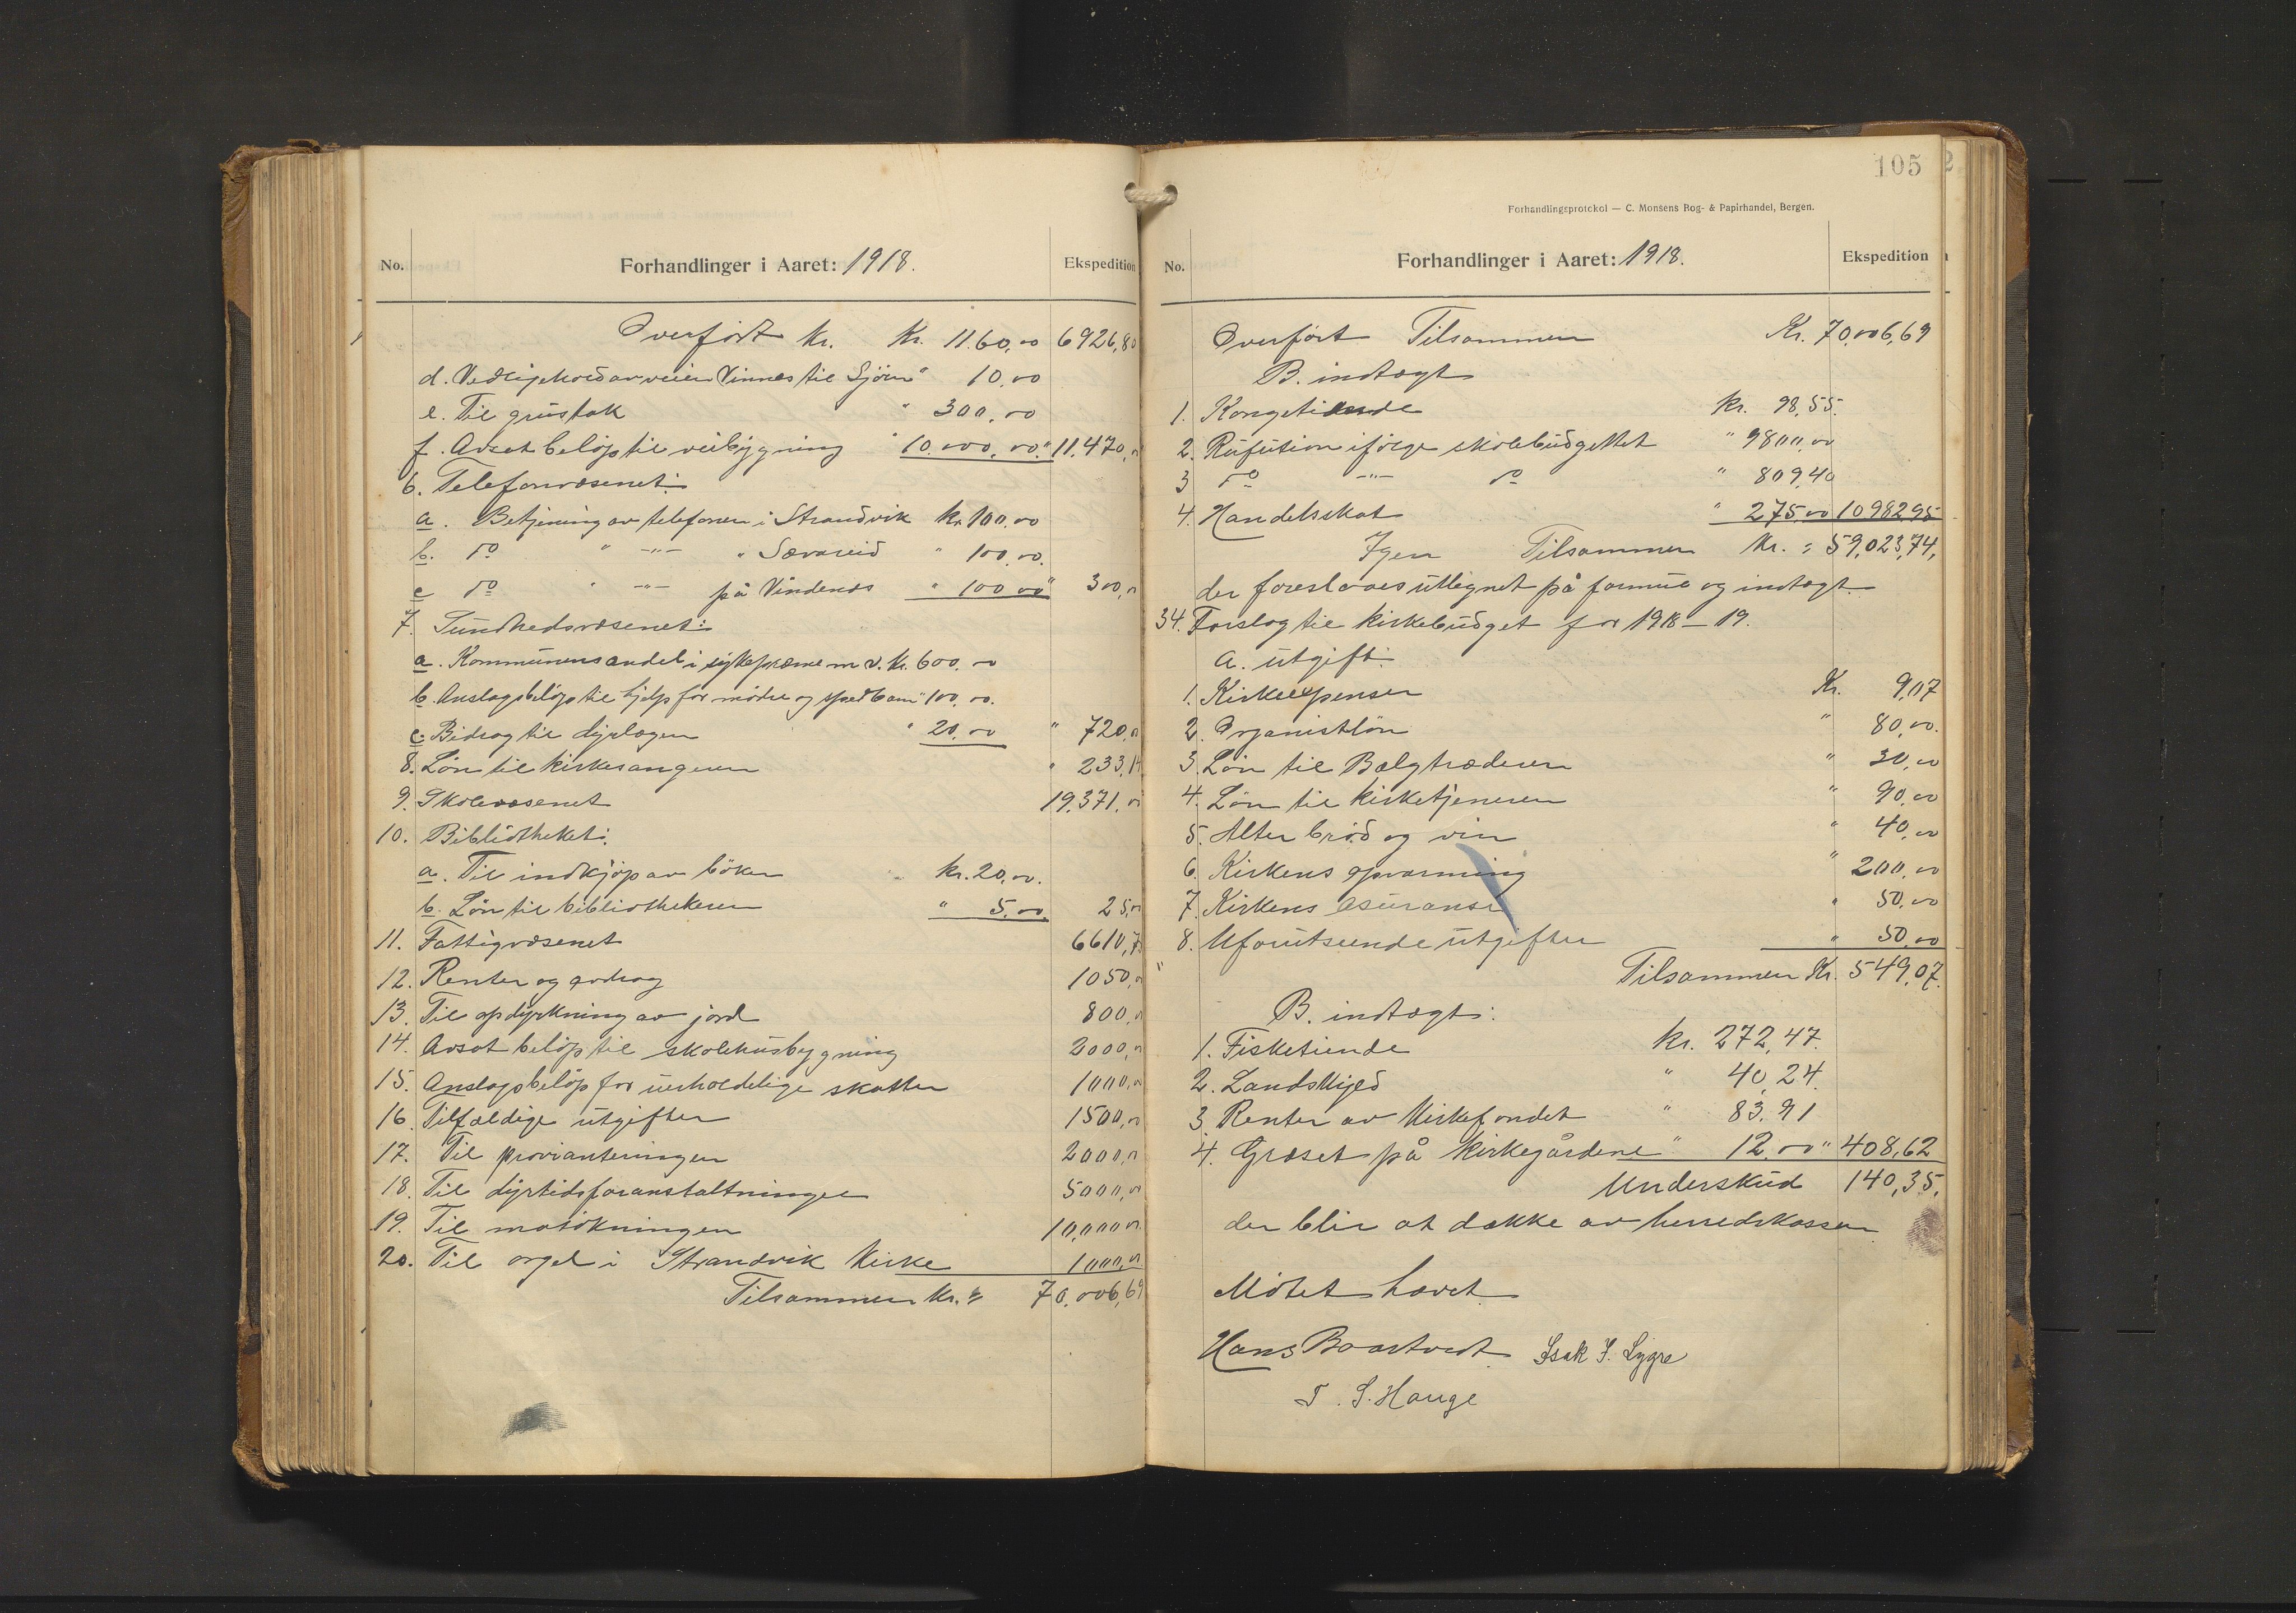 No.
Forhandlinger i Aaret: 1918.
Ekspedition
Overført kr. Kr. 1160,00 6926,80
d. Vedlikehold av veien Vinnes til Sjöen " 10,00
e. Til grustak " 300,00
f. Avsat belöp til veibygning " 10.000,00 " 11.470,
6. Telefonvæsenet:
a. Betjening av telefonen i Strandvik kr. 100,00
b. do " -"- " Sævareid " 100,00.
c do " -"- på Vindenes " 100 00 " 300,
7. Sundhedsvæsenet:
a. Kommunens andel i sykepræmie m.v. kr. 600,00
b. Anslagsbelöp til hjelp for mödre og spedbarn " 100,00.
c. Bidrag til dyrlægen " 20,00 " 720,
8. Lön til kirkesangeren " 233,
9. Skolevæsenet 19.371,
10. Bibliotheket:
a. Til indkjöp av böker kr. 20,00.
b. Lön til bibliothekeren " 5,00 25,
11. Fattigvæsenet 6610,7
12. Renter og avdrag 1050,
13. Til opdyrkning av jord 800,
14. Avsat belöp til skolehusbygning 2000,
15. Anslagsbelöp for uerholdelige skatter 1000,
16. Tilfældige utgifter 1500,
17. Til provianteringen 2000,
18. Til dyrtidsforanstaltninger 5000,
19. Til matökningen 10,000
20. Til orgel i Strandvik Kirke 1000,
Tilsammen kr. " 70.006,69
105
Forhandlingsprotokol — C. Monsens Bog- & Papirhandel, Bergen.
No.
Forhandlinger i Aaret: 1918.
Ekspedition
Overfört Tilsammen Kr. 70,006,69
B. indtægt
1. Kongetiende kr. 98,55.
2. Refusion ifölge skolebudgettet " 9800,00
3 do -"- do " 809,40
4. Handelsskat " 275,00 10982,95
Igen Tilsammen Kr. " 59,023,74,
der foreslaaes utlignet på formue og indtægt.
34. Forslag til kirkebudget for 1918–19.
A. utgift:
1. Kirkeexpenser Kr. 9,07
2. Organistlön " 80,00.
3. Lön til Bælgtræderen " 30,00
4. Lön til kirketjeneren " 90,00
5. Alterbröd og vin " 40,00
6. Kirkens opvarming " 200,00
7. Kirkens asuranse " 50,00
8. Uforutseende utgifter " 50,00
Tilsammen Kr. 549,07.
B. indtægt:
1. Fisketiende kr. 272,47.
2. Landskyld " 40,24.
3. Renter av Kirkefondet " 83,91
4. Græset på Kirkegårdene " 12,00 " 408,62
Underskud 140,35,
der blir at dække av herredskassen
Mötet hævet.
Hans Baartvedt. Isak I. Lygre
T. S. Hauge